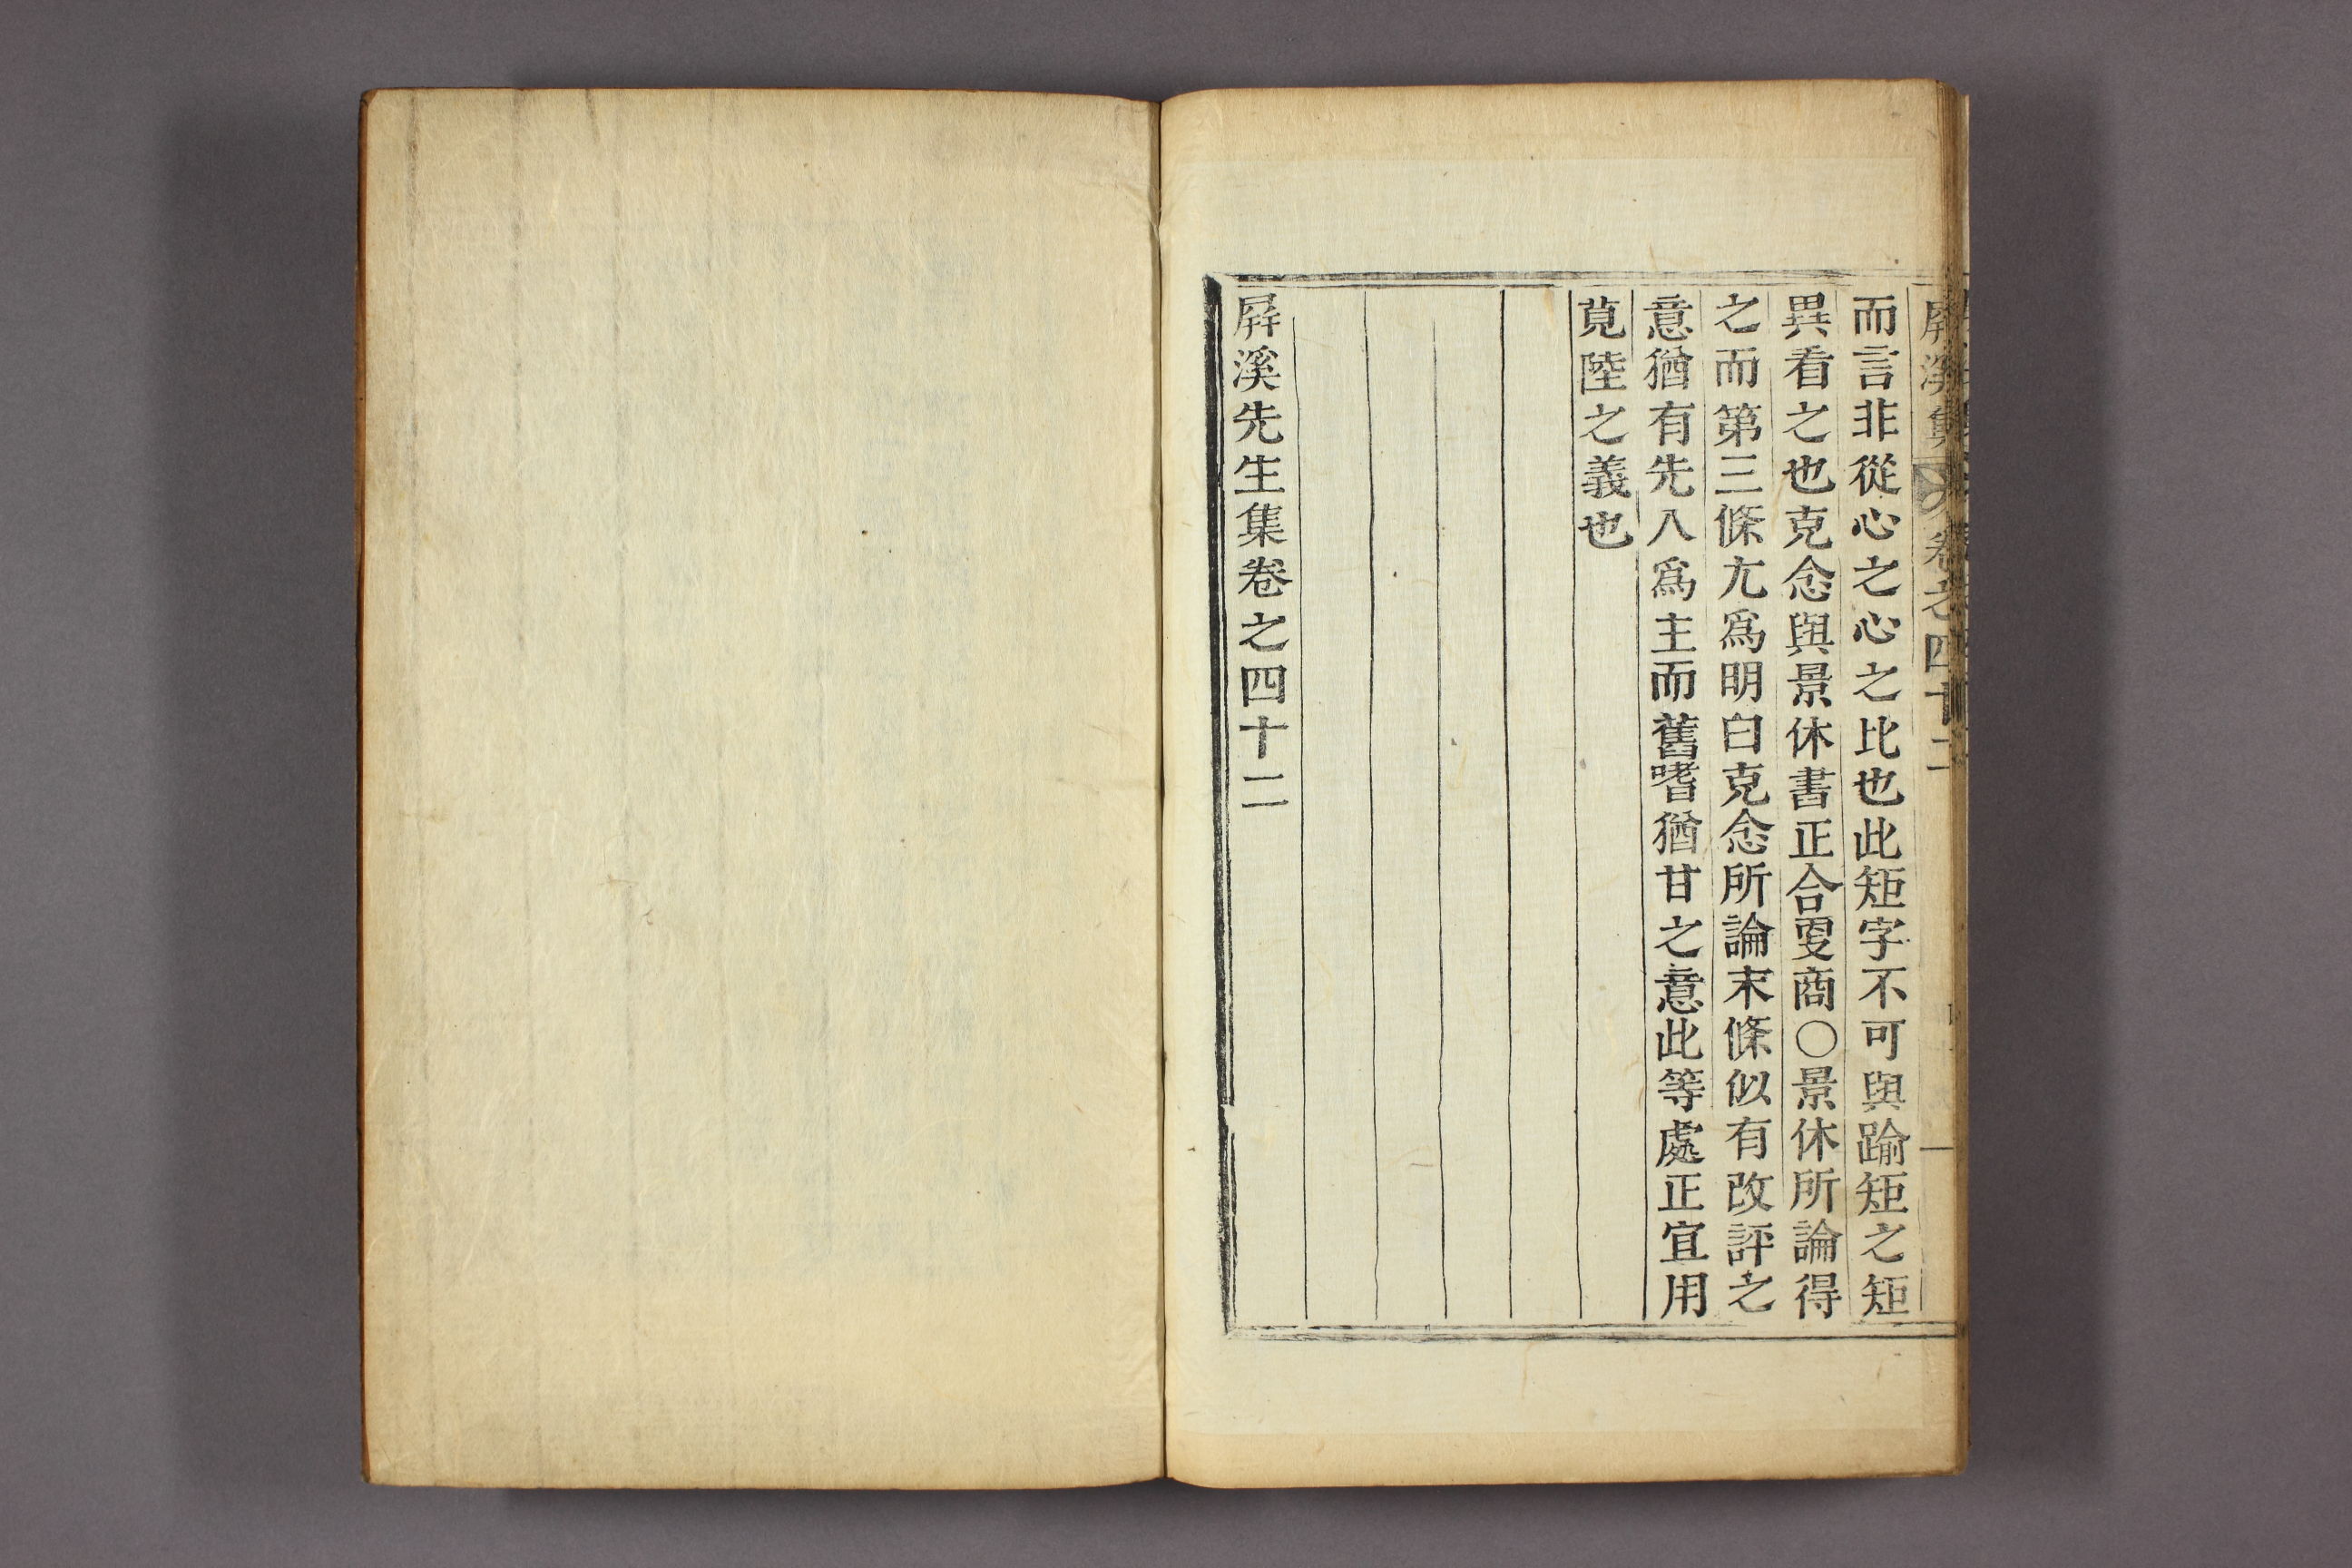 屛溪集 卷之四十二
而言非從心之心之比也此矩字不可與踰矩之矩
異看之也克念與景休書正合更商○景休所論得
之而第三條尤爲明白克念所論末條似有改評之
意猶有先入爲主而舊嗜猶甘之意此等處正宜用
莧陸之義也
屛溪先生集卷之四十二